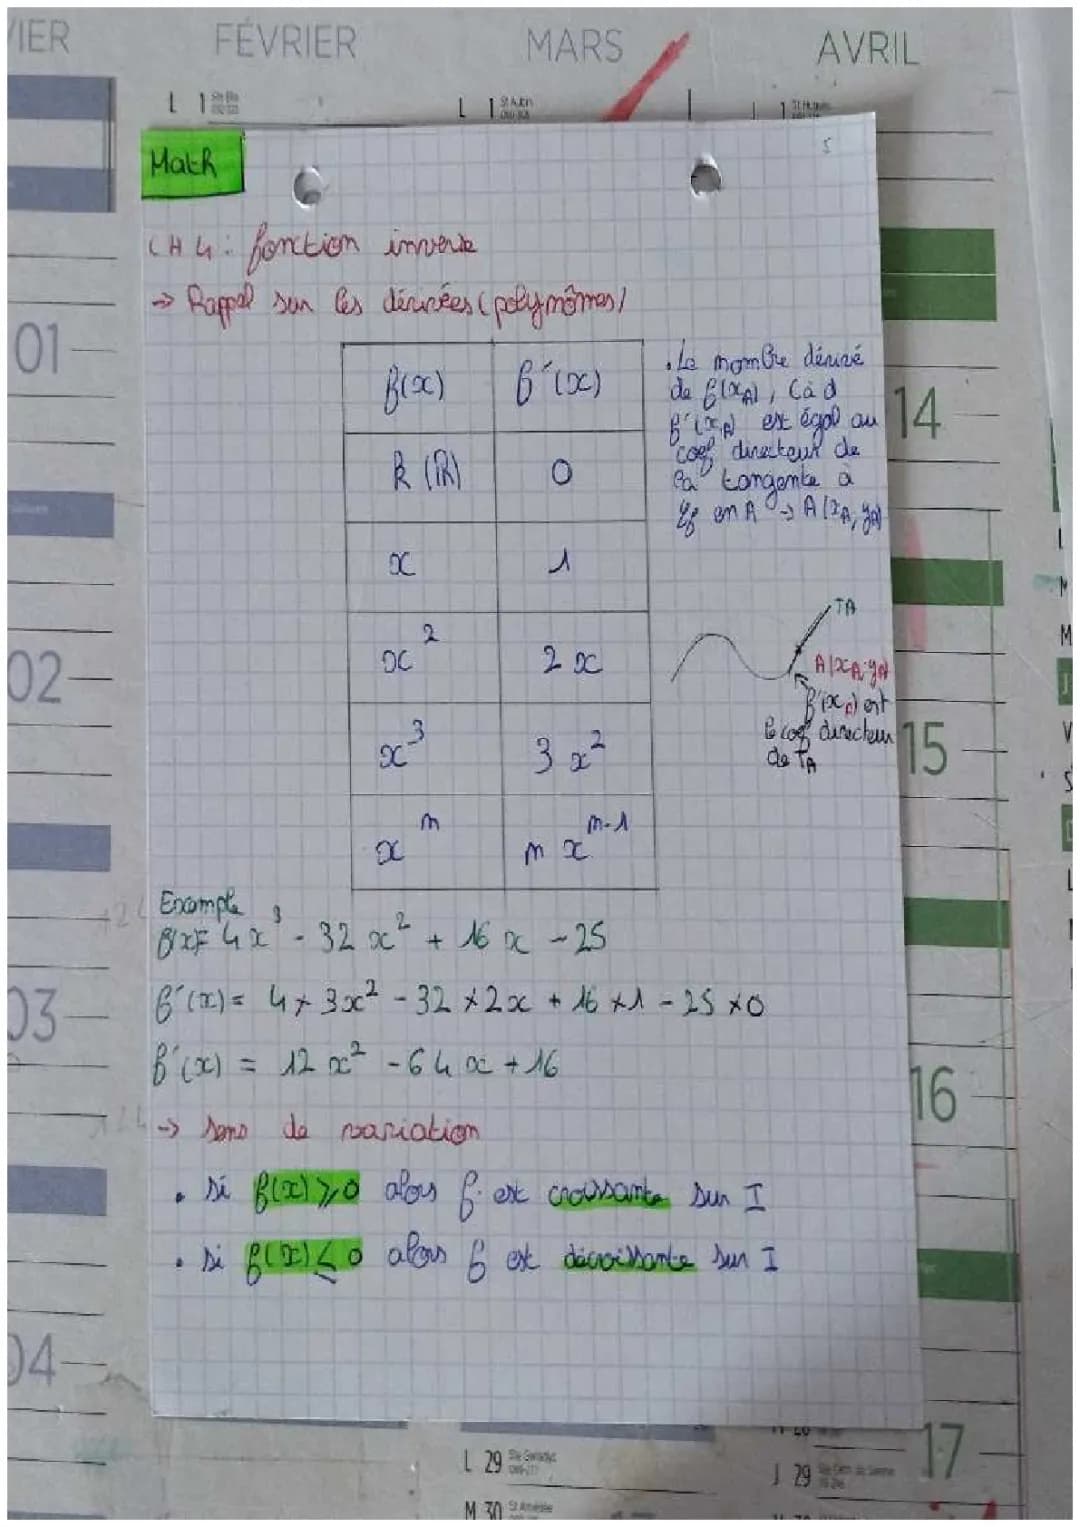 FÉVRIER
MARS
AVRIL
L 1
L 1
1
Math
5
CH 4 : fonction inverse
→ Rappel sur les dérivées (polynômes)
f(x) f'(x)
k (ℝ) 0
x 1
x² 2x
x³ 3x²
xⁿ n xⁿ⁻¹
• Le nombre dérivé
de f(xA), càd
f'(xA) est égal au
coef directeur de
la tangente à
Cf en A → A(xA, yA)
TA
A(xA; yA)
f'(xA) est
le coef directeur
de TA
Exemple
f(x)= 4x³ - 32x² + 16x - 25
f'(x)= 4×3x² - 32×2x + 16×1 - 25×0
f'(x) = 12x² - 64x + 16
→ sens de variation
• si f(x) ⩾ 0 alors f est croissante sur I
• si f(x) ⩽ 0 alors f est décroissante sur I
01
02
03
04
14
15
16
17
L 29
M 30
J 29